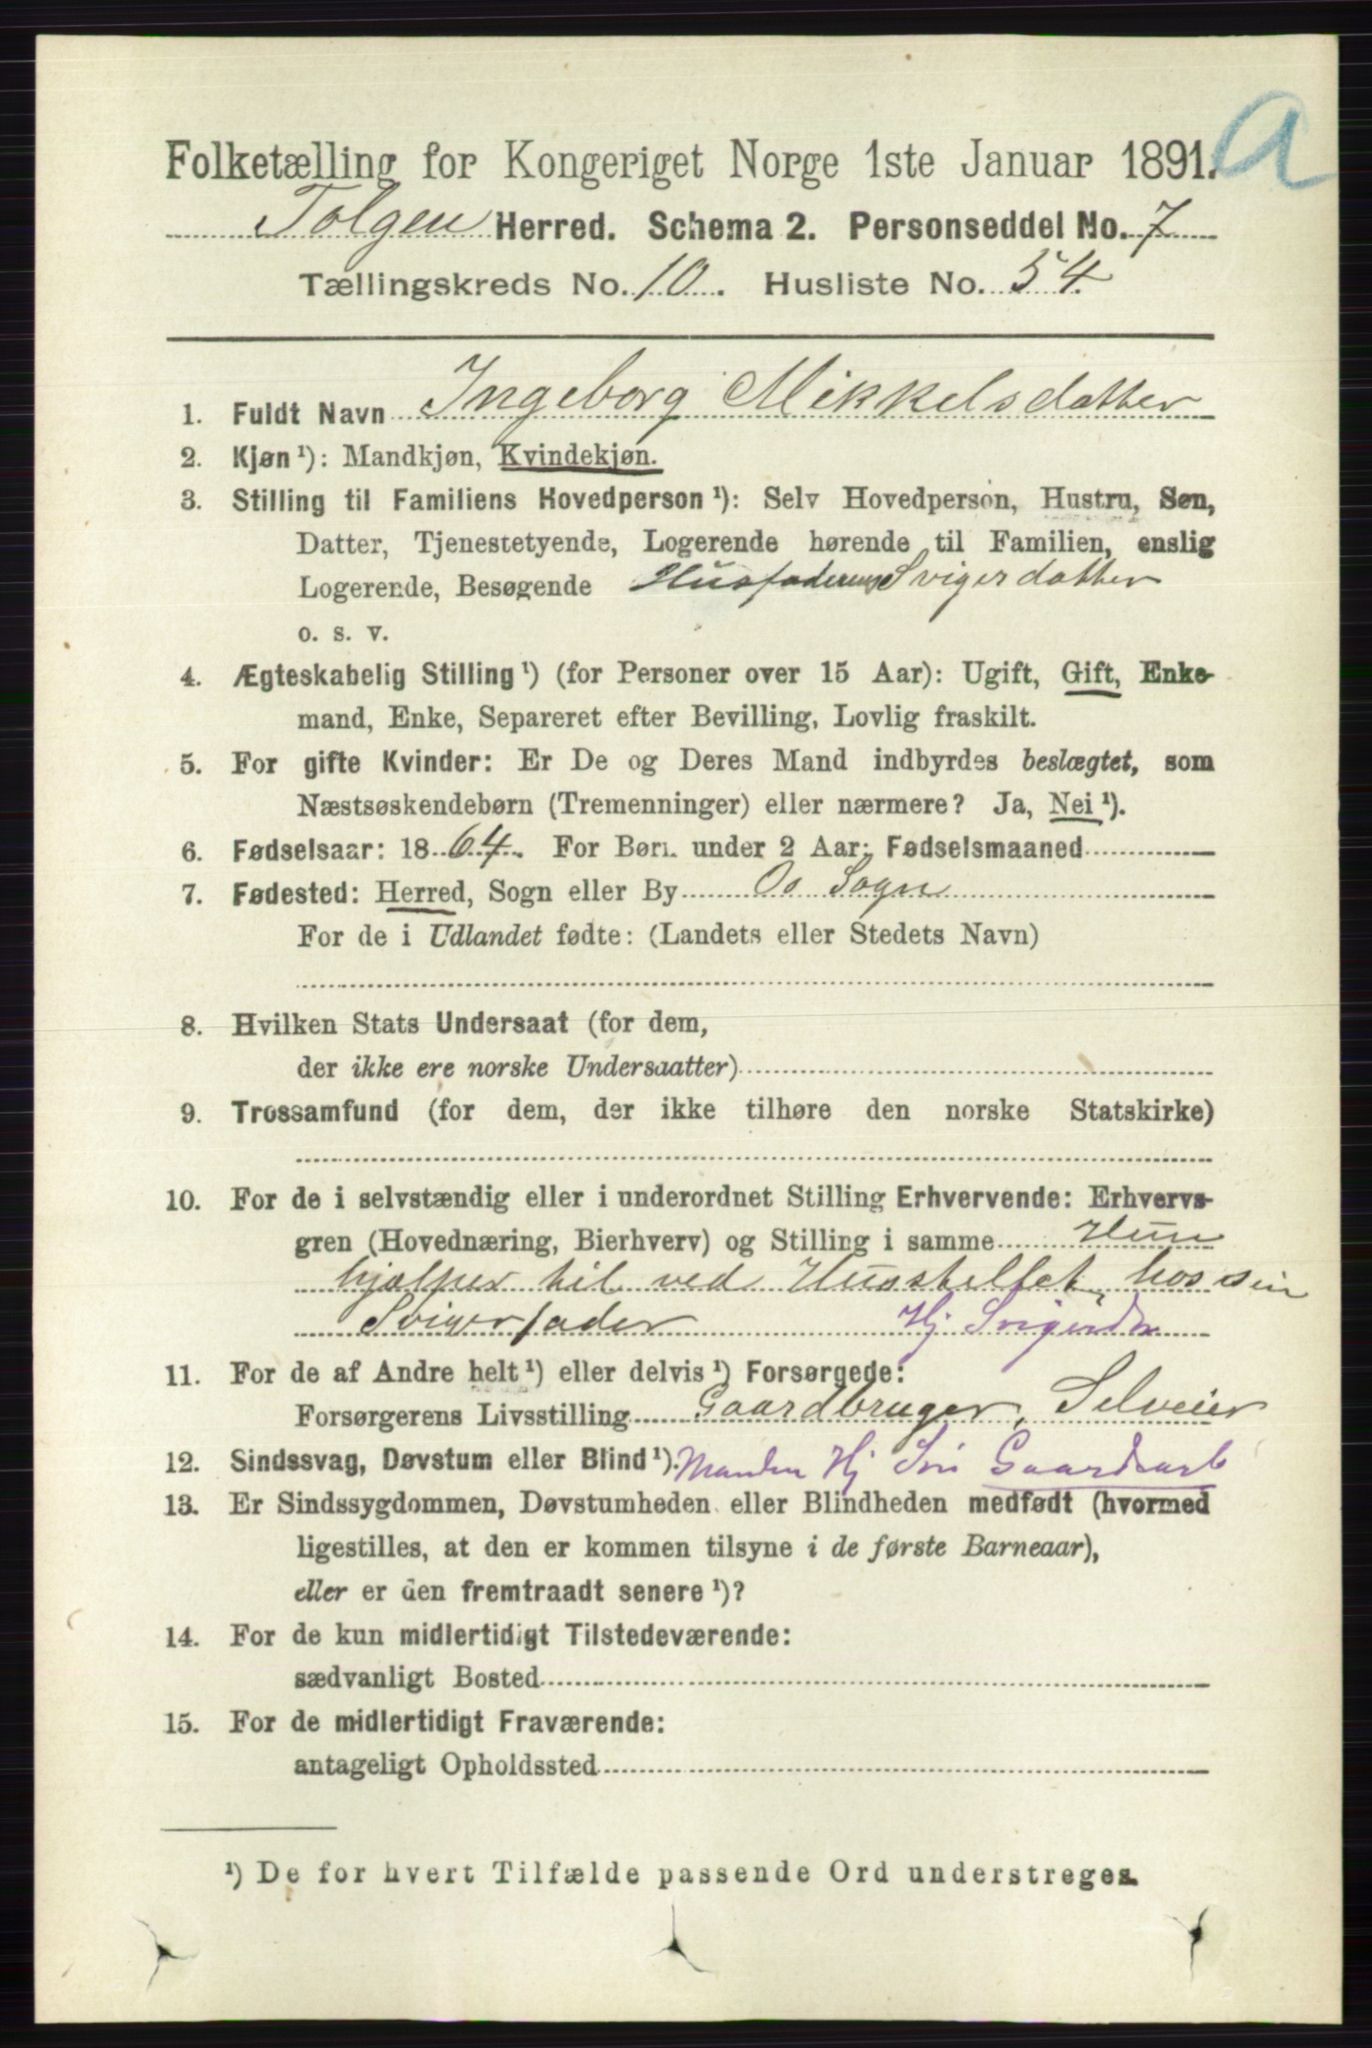 a
Folketælling for Kongeriget Norge 1ste Januar 1891.
Tolgen Herred. Schema 2. Personseddel No. 7
Tællingskreds No. 10. Husliste No. 54.
1. Fuldt Navn Ingeborg Mikkelsdatter
2. Kjøn ¹): Mandkjøn, Kvindekjøn.
3. Stilling til Familiens Hovedperson ¹): Selv Hovedperson, Hustru, Søn,
Datter, Tjenestetyende, Logerende hørende til Familien, enslig
Logerende, Besøgende Husfaderens Svigerdatter
o. s. v.
4. Ægteskabelig Stilling ¹) (for Personer over 15 Aar): Ugift, Gift, Enke-
mand, Enke, Separeret efter Bevilling, Lovlig fraskilt.
5. For gifte Kvinder: Er De og Deres Mand indbyrdes beslægtet, som
Næstsøskendebørn (Tremenninger) eller nærmere? Ja, Nei ¹).
6. Fødselsaar: 1864. For Børn under 2 Aar: Fødselsmaaned
7. Fødested: Herred, Sogn eller By Os Sogn
For de i Udlandet fødte: (Landets eller Stedets Navn)
8. Hvilken Stats Undersaat (for dem,
der ikke ere norske Undersaatter)
9. Trossamfund (for dem, der ikke tilhøre den norske Statskirke)
10. For de i selvstændig eller i underordnet Stilling Erhvervende: Erhvervs-
gren (Hovednæring, Bierhverv) og Stilling i samme Hun
hjælper til ved Husstellet hos sin
Svigerfader Hj Svigerdtr
11. For de af Andre helt ¹) eller delvis ¹) Forsørgede:
Forsørgerens Livsstilling Gaardbruger, Selveier
12. Sindssvag, Døvstum eller Blind ¹). Manden Hj Søn Gaardsarb
13. Er Sindssygdommen, Døvstumheden eller Blindheden medfødt (hvormed
ligestilles, at den er kommen tilsyne i de første Barneaar),
eller er den fremtraadt senere ¹)?
14. For de kun midlertidigt Tilstedeværende:
sædvanligt Bosted
15. For de midlertidigt Fraværende:
antageligt Opholdssted
¹) De for hvert Tilfælde passende Ord understreges.